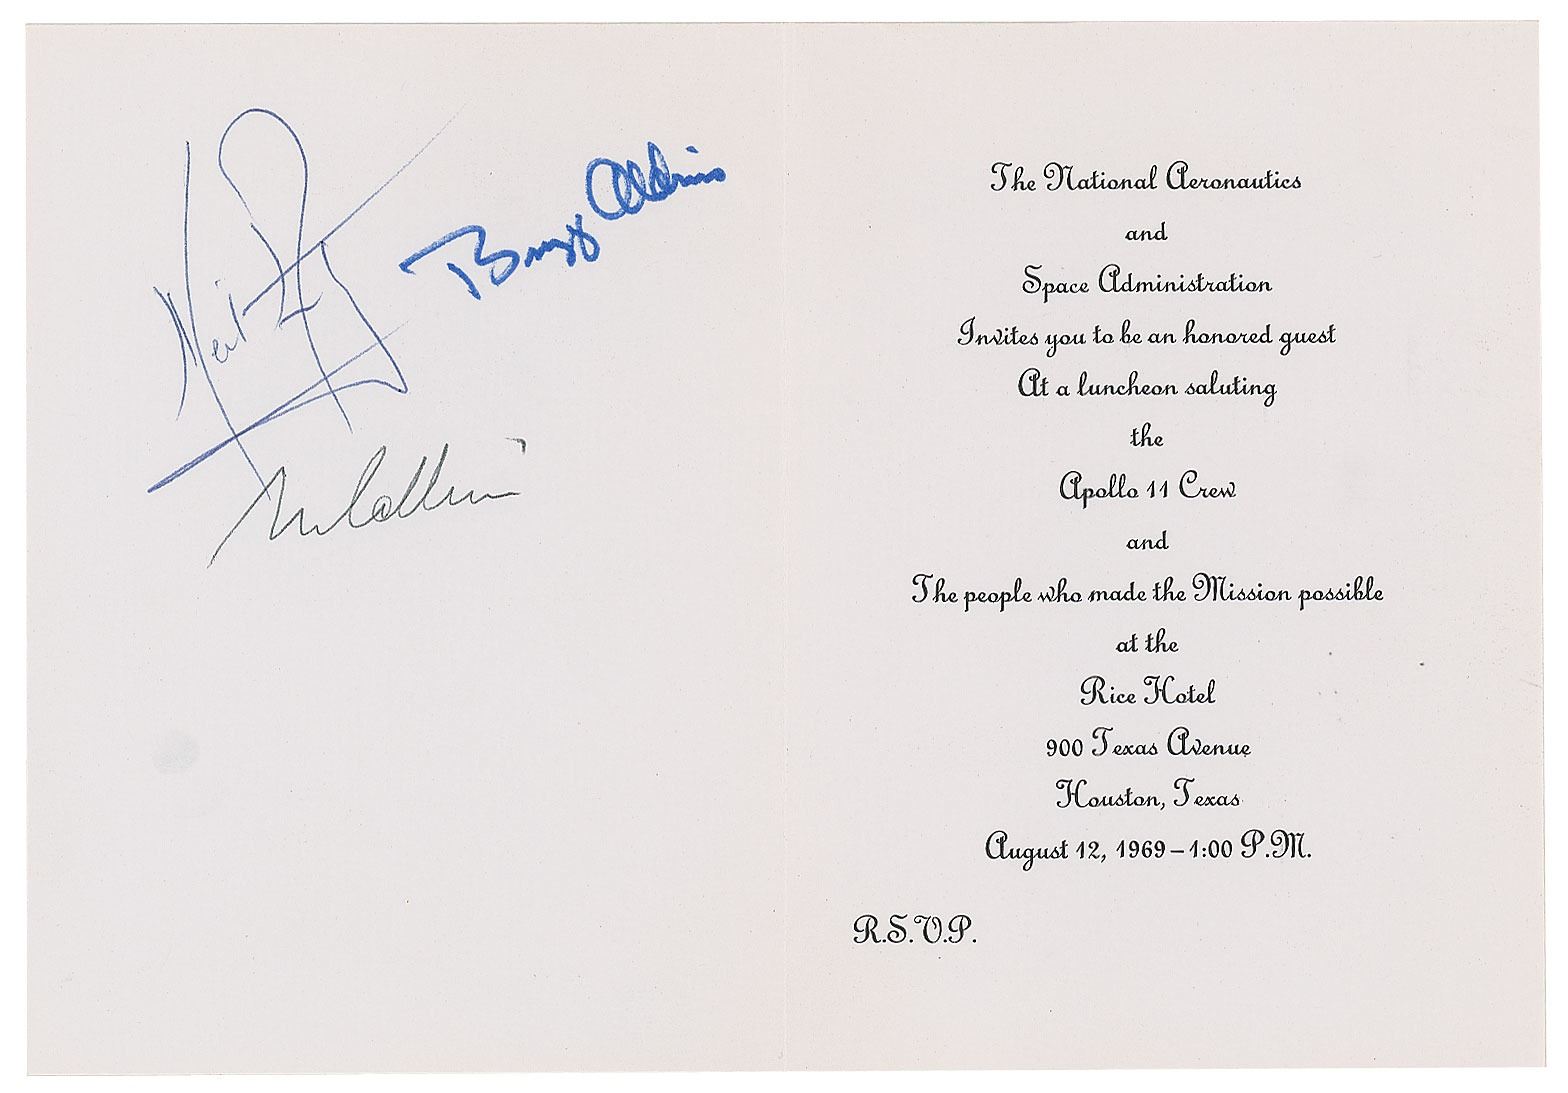 Neil Armstrong
Buzz Aldrin
M Collins
The National Aeronautics
and
Space Administration
Invites you to be an honored guest
At a luncheon saluting
the
Apollo 11 Crew
and
The people who made the Mission possible
at the
Rice Hotel
900 Texas Avenue
Houston, Texas
August 12, 1969 – 1:00 P.M.
R.S.V.P.